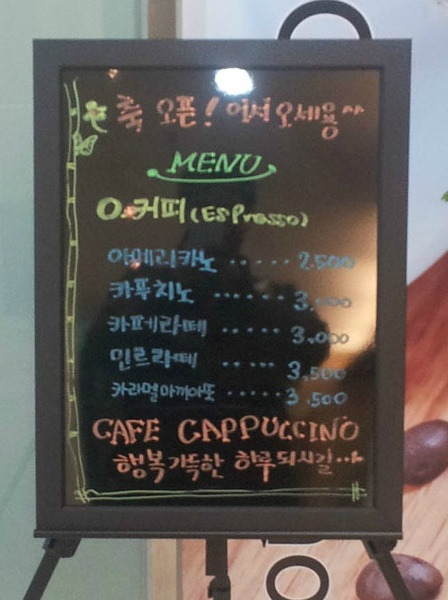 축 오픈! 어서 오세용^^
MENU
O.커피(Espresso)
아메리카노 ...... 2.500
카푸치노 ...... 3,000
카페라떼 ..... 3,000
민트라떼 ..... 3,500
카라멜마끼아또 ..... 3.500
CAFE CAPPUCCINO
행복가득한 하루되시길...